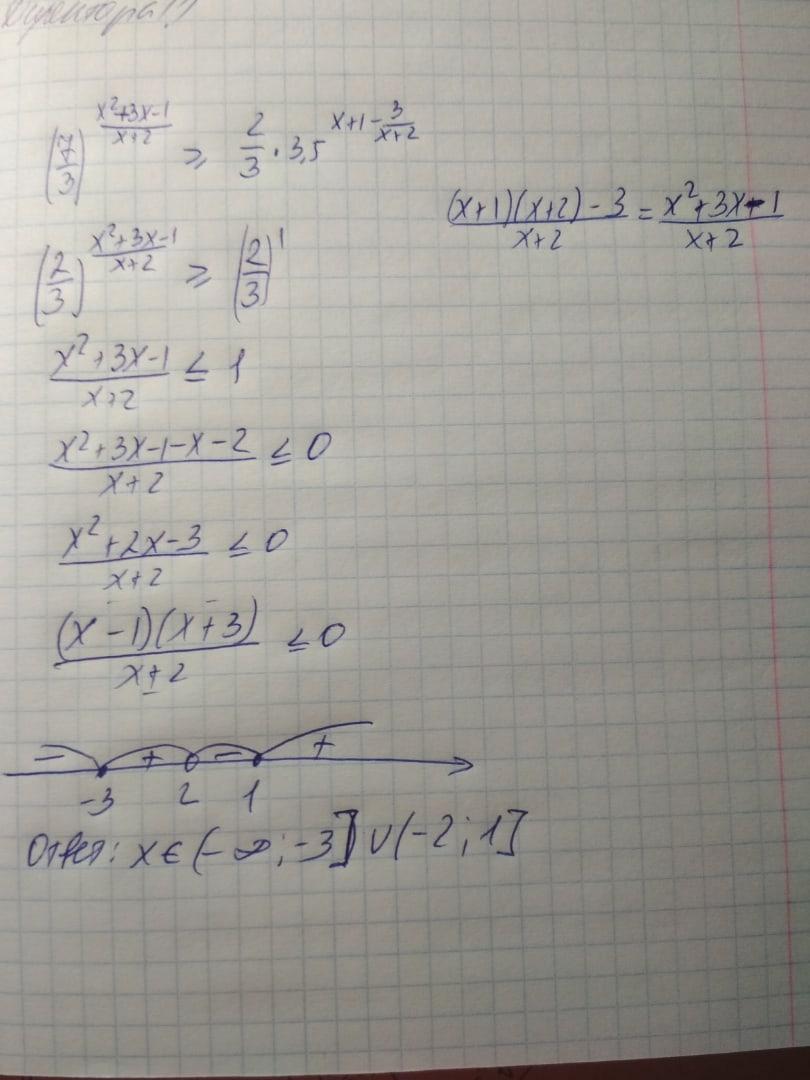 (7/3)^((x²+3x-1)/(x+2)) ≥ 2/3 · 3,5^(x+1-3/(x+2))
((x+1)(x+2)-3)/(x+2) = (x²+3x-1)/(x+2)
(2/3)^((x²+3x-1)/(x+2)) ≥ (2/3)^1
(x²+3x-1)/(x+2) ≤ 1
(x²+3x-1-x-2)/(x+2) ≤ 0
(x²+2x-3)/(x+2) ≤ 0
((x-1)(x+3))/(x+2) ≤ 0
- + - +
-3 2 1
Ответ: x∈(-∞;-3]∪(-2;1]